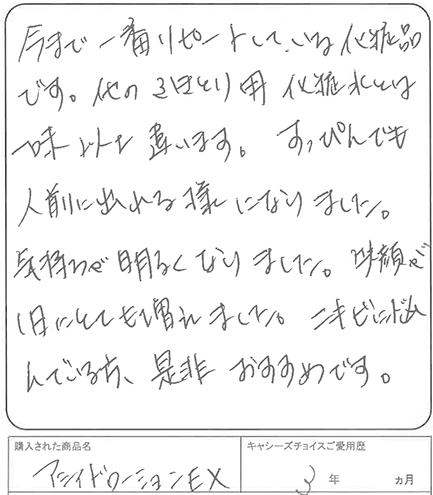 今まで一番リピートしている化粧品
です。他のユほとり用化粧水とは
一味以上違います。すっぴんでも
人前に出れる様になりました。
気持ちが明るくなりました。 笑顔が
1日にとても増えました。ニキビに悩
んでいる方、是非おすすめです。
購入された商品名
キャシーズチョイスご愛用歴
アシィドローションEX
3年 ヵ月